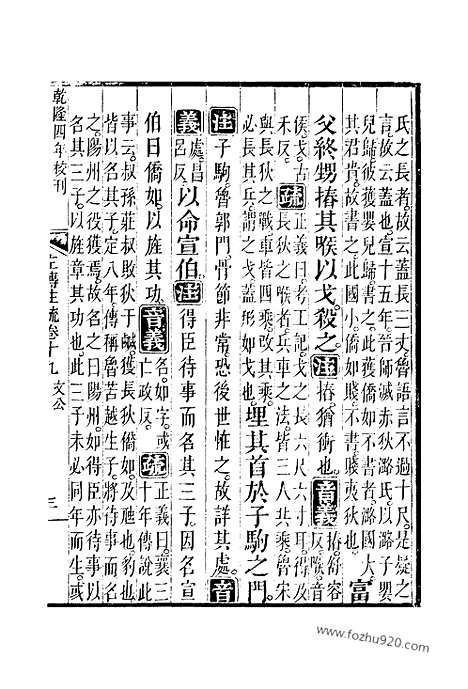 氏之長者故云蓋長三丈魯語言不過十尺是疑之
言故云蓋也宣十五年晉師滅赤狄潞氏以潞子嬰
兒歸彼獲嬰兒歸書之此獲僑如不書者潞國大
其君貴故書之此國小僑如賤不書賤夷狄也富
父終甥摏其喉以戈殺之注摏猶衝也音義摏舒容反喉音
侯戈古禾反疏正義曰考工記戈之長六尺六寸耳得及長狄之喉者兵車之法皆三人共乘魯宋
與長狄之戰車皆四乘改其乘必長其兵謂之戈蓋形如戈也埋其首於子駒之門
注子駒魯郭門骨節非常恐後世怪之故詳其處音
義處昌呂反以命宣伯注得臣待事而名其三子因名宣
伯曰僑如以旌其功音義名如字或亡政反疏正義曰襄三十年傳說此
事云叔孫莊叔敗狄于鹹獲長狄僑如及虺也豹也
皆以名其子定八年傳稱魯苦越生子將待事而名
之陽州之役獲焉故名之曰陽州如得臣亦待事以
名其三子以旌章其功也此三子未必同年而生或
乾隆四年校刊 左傳注疏卷十九 文公 三
www.fozhu920.com